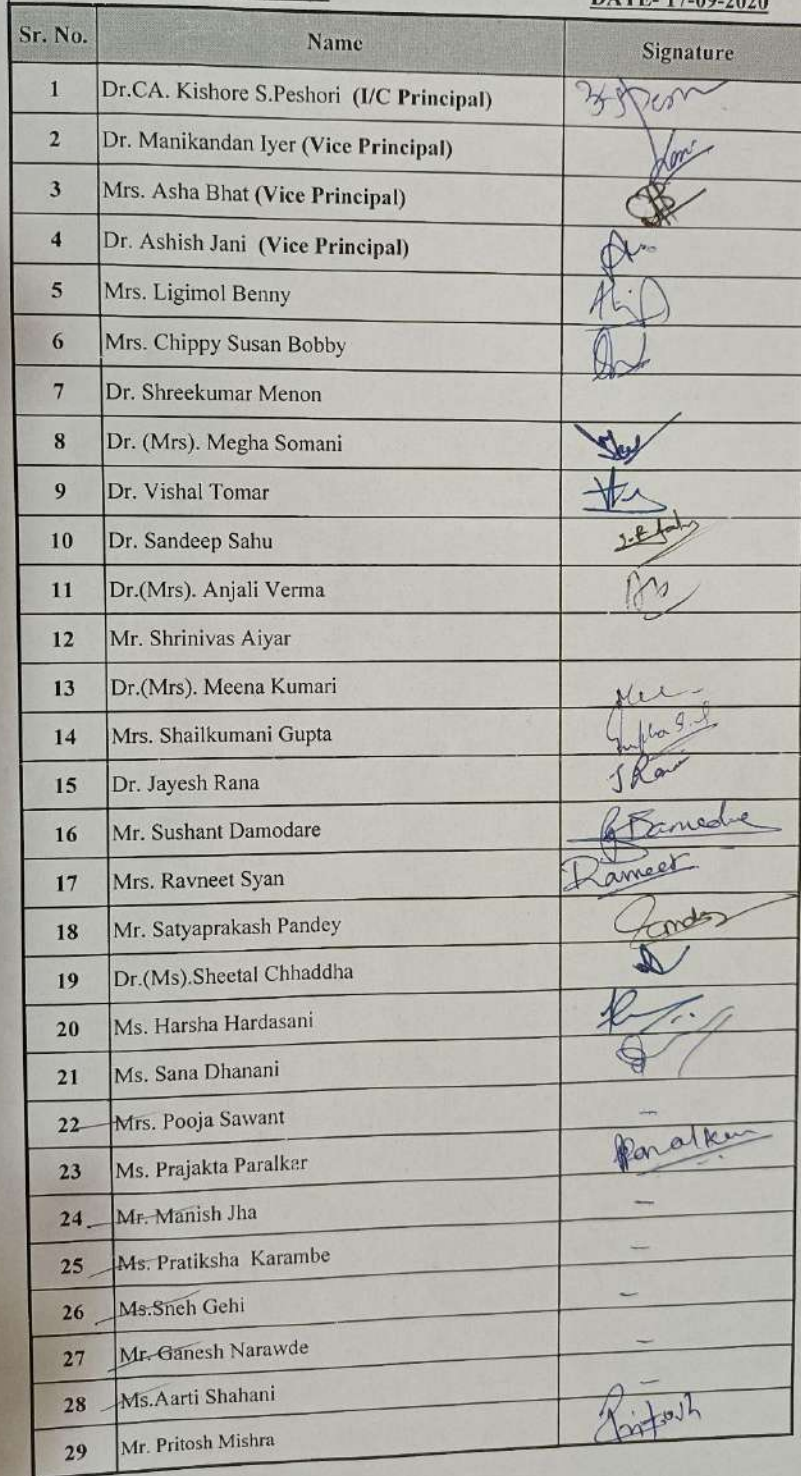 DATE- 17-09-2020
Sr. No. Name Signature
1 Dr.CA. Kishore S.Peshori (I/C Principal)
2 Dr. Manikandan Iyer (Vice Principal)
3 Mrs. Asha Bhat (Vice Principal)
4 Dr. Ashish Jani (Vice Principal)
5 Mrs. Ligimol Benny
6 Mrs. Chippy Susan Bobby
7 Dr. Shreekumar Menon
8 Dr. (Mrs). Megha Somani
9 Dr. Vishal Tomar
10 Dr. Sandeep Sahu
11 Dr.(Mrs). Anjali Verma
12 Mr. Shrinivas Aiyar
13 Dr.(Mrs). Meena Kumari
14 Mrs. Shailkumani Gupta
15 Dr. Jayesh Rana J Rana
16 Mr. Sushant Damodare
17 Mrs. Ravneet Syan
18 Mr. Satyaprakash Pandey
19 Dr.(Ms).Sheetal Chhaddha
20 Ms. Harsha Hardasani
21 Ms. Sana Dhanani
22 Mrs. Pooja Sawant -
23 Ms. Prajakta Paralkar
24 Mr. Manish Jha -
25 Ms. Pratiksha Karambe -
26 Ms.Sneh Gehi -
27 Mr. Ganesh Narawde -
28 Ms.Aarti Shahani -
29 Mr. Pritosh Mishra Pritosh